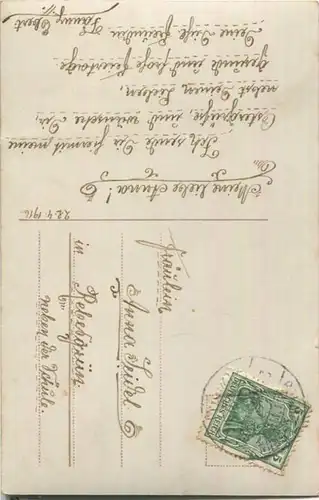 22.4.1916
Meine liebe Anna!
Ich sende Dir hiermit meine
Ostergrüße, und wünsche Dir,
nebst Deinen Lieben,
gesunde und frohe Feiertage.
Deine Dich liebende Freundin
Fanny Ebert
Fräulein
Anna Seidel
in Rebesgrün
neben der Schule.
DEUTSCHES REICH
5